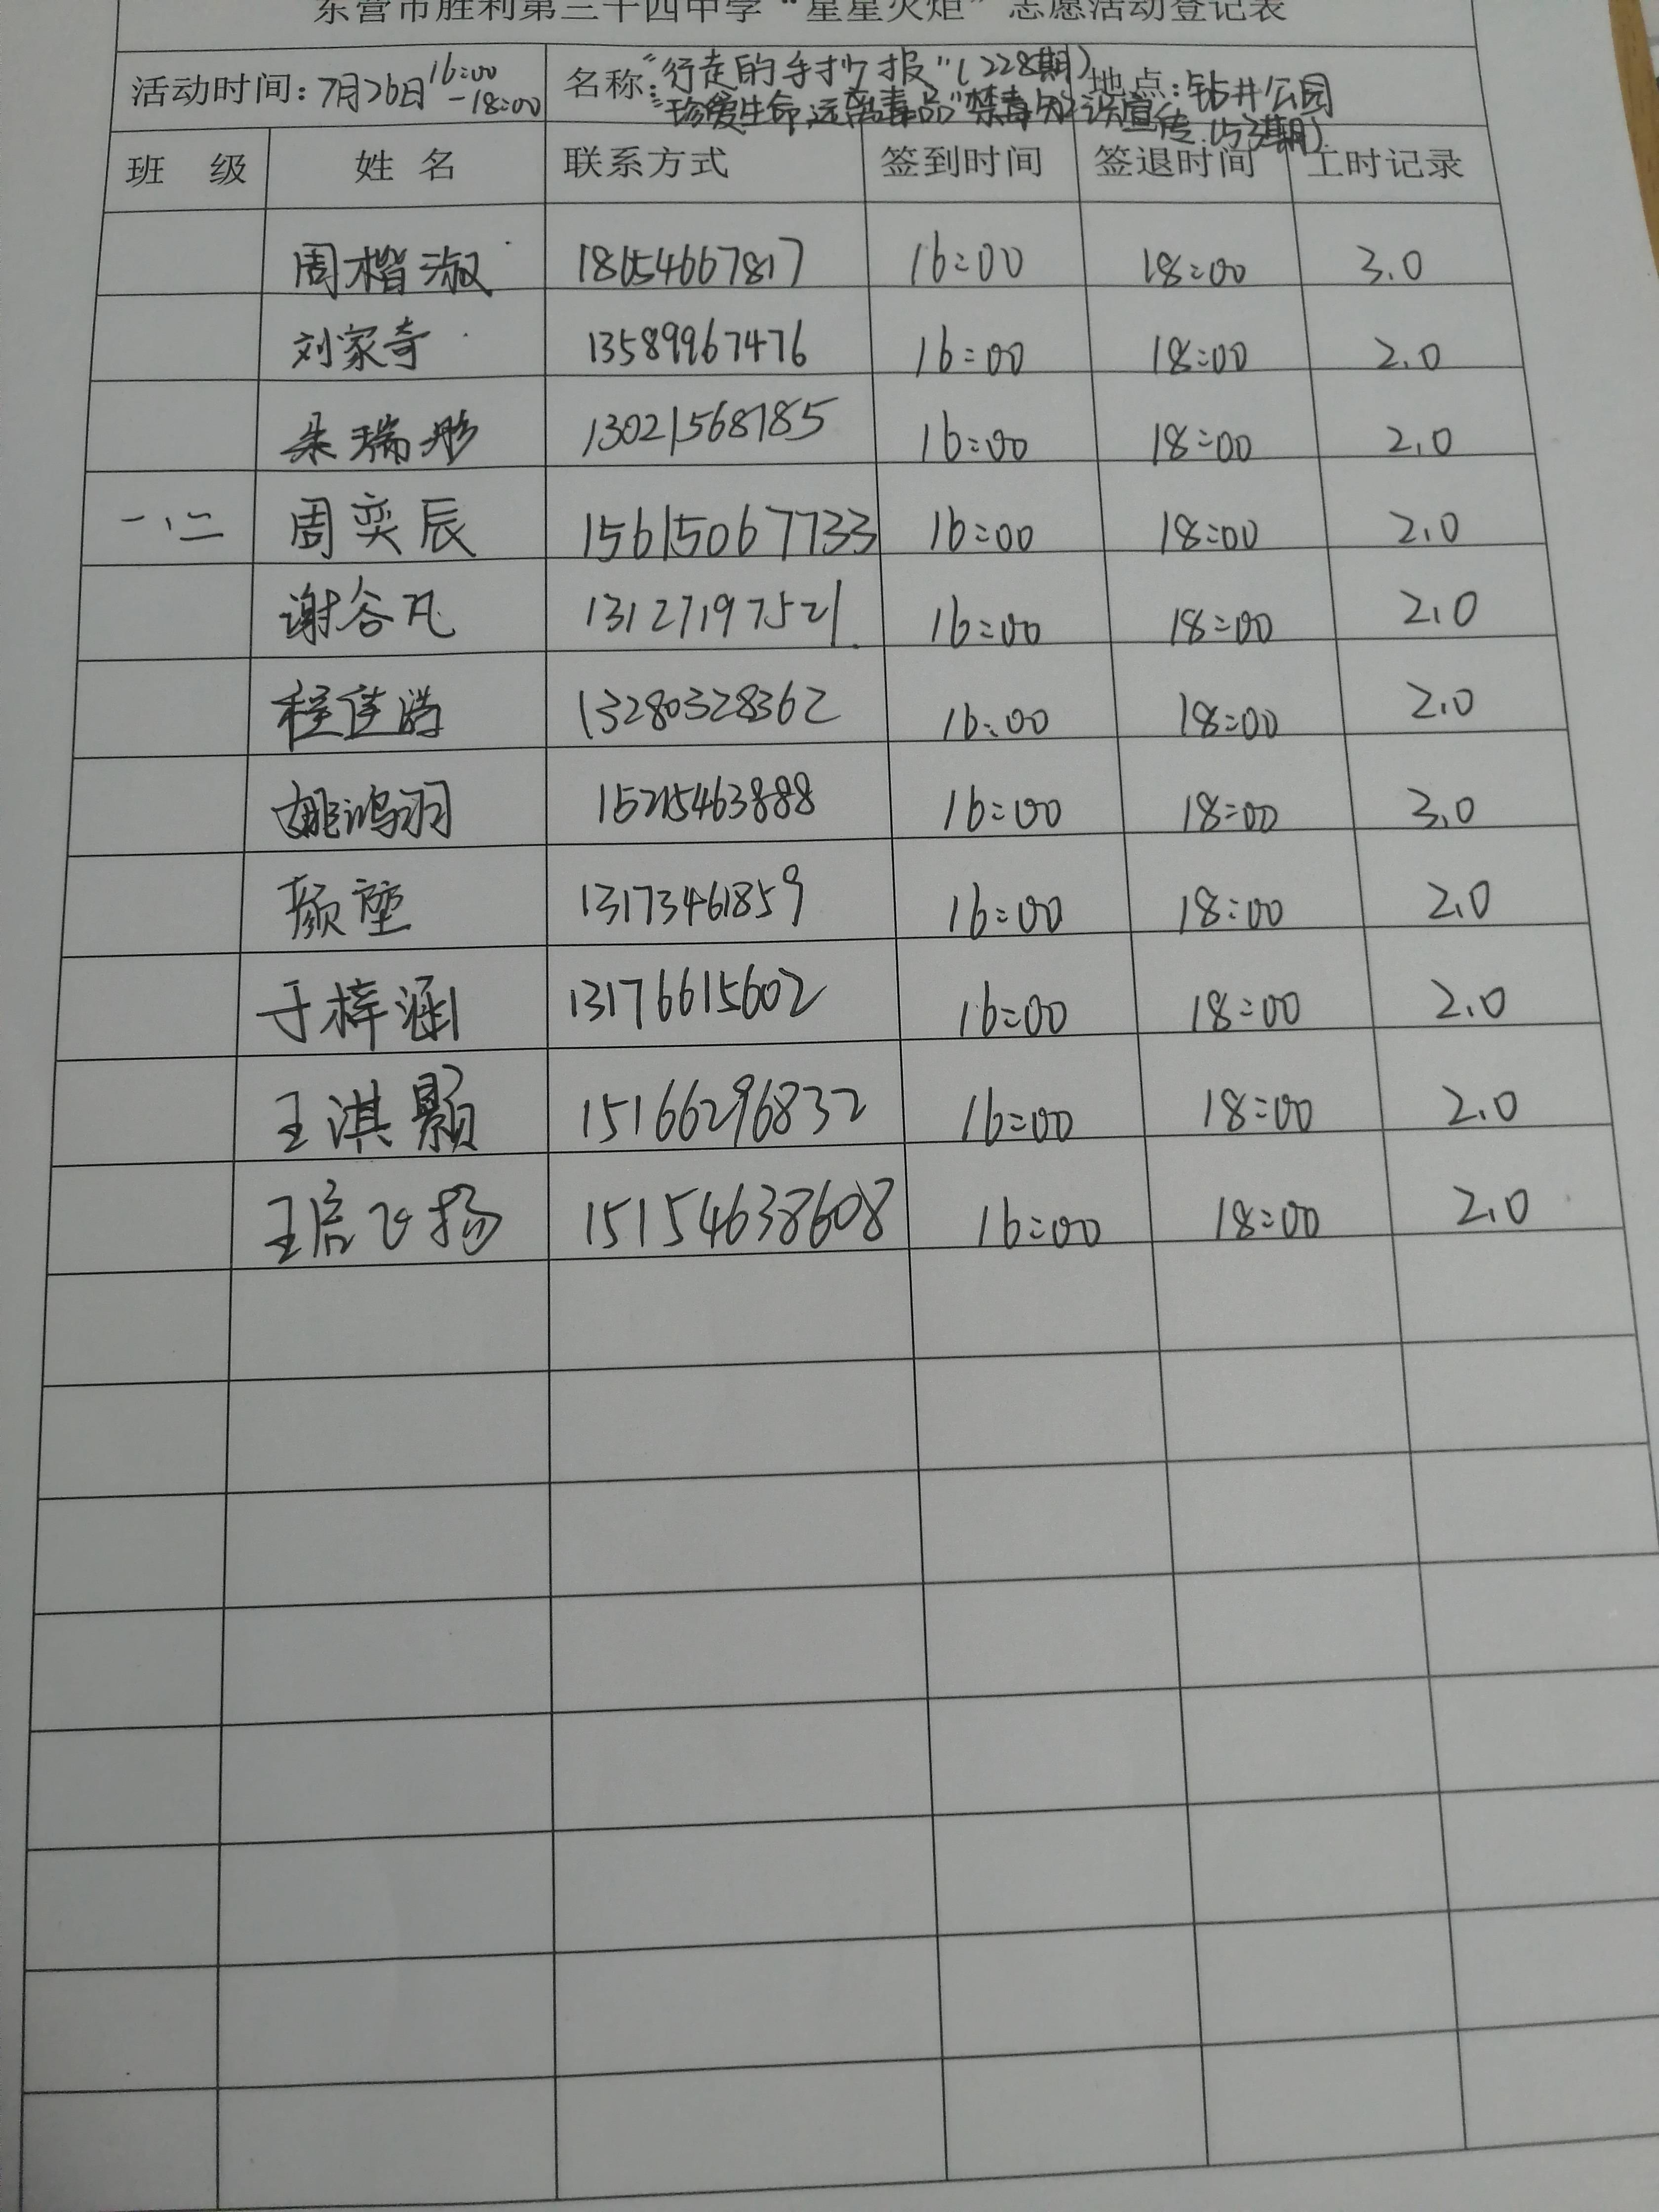 东营市胜利第三十四中学“星星火炬”志愿活动登记表
活动时间：7月26日16:00-18:00 名称：“行走的手抄报”（228期） 地点：钻井公园
“珍爱生命，远离毒品”禁毒知识宣传（153期）
班 级 姓 名 联系方式 签到时间 签退时间 工时记录
周楷淑 18654667817 16:00 18:00 3.0
刘家奇 13589967476 16:00 18:00 2.0
朱瑞彤 13021568785 16:00 18:00 2.0
一、二 周奕辰 15615067733 16:00 18:00 2.0
谢谷凡 13127197521 16:00 18:00 2.0
程佳鸿 13280328362 16:00 18:00 2.0
姚鸿羽 15215463888 16:00 18:00 3.0
颜堃 13173461859 16:00 18:00 2.0
于梓涵 13176615602 16:00 18:00 2.0
王淇颢 15166296832 16:00 18:00 2.0
王信飞扬 15154638608 16:00 18:00 2.0